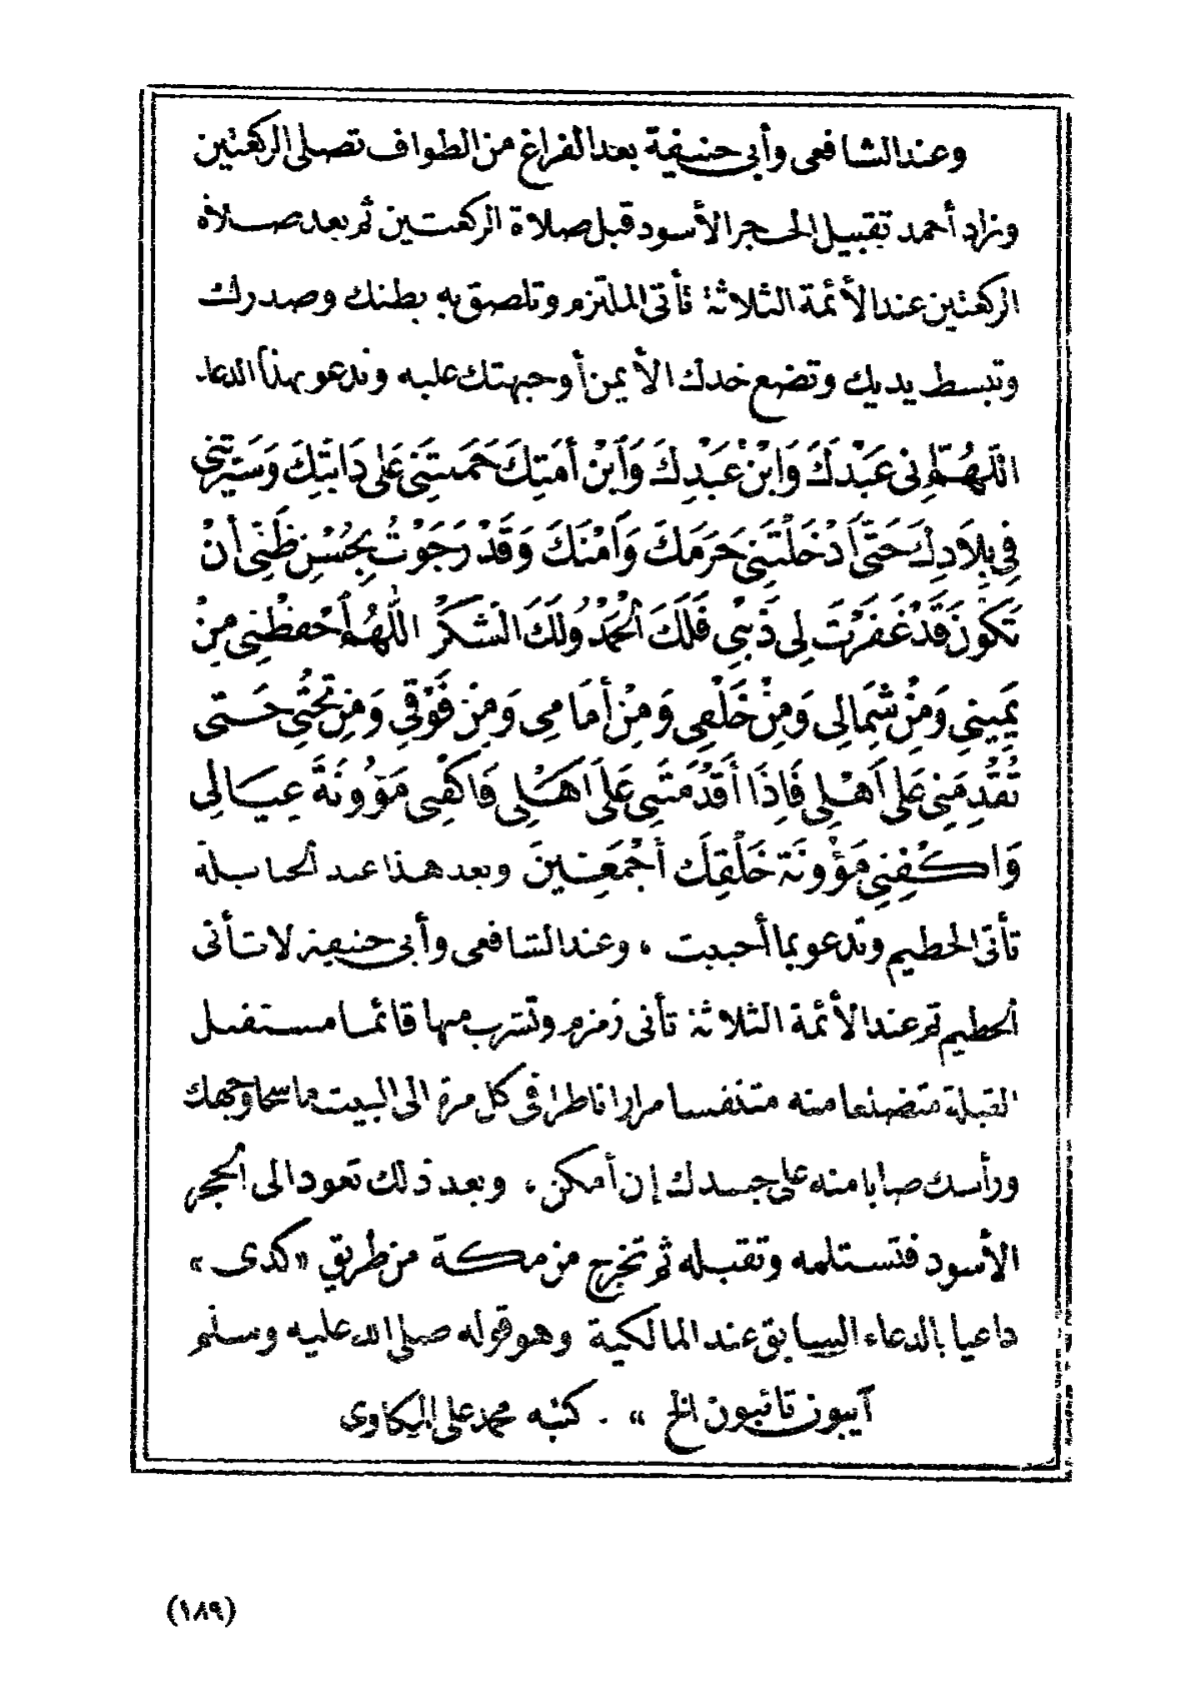 وعند الشافعى وأبى حنيفة بعد الفراغ من الطواف تصلى الركعتين
وزاد أحمد تقبيل الحجر الأسود قبل صلاة الركعتين ثم بعد صلاة
الركعتين عند الأئمة الثلاثة تأتى الملتزم وتلصق به بطنك وصدرك
وتبسط يديك وتضع خدك الأيمن أو جبهتك عليه وتدعو بهذا الدعاء
اللَّهُمَّ إِنِى عَبْدُكَ وَابْنُ عَبْدِكَ وَابْنُ أَمَتِكَ حَمَلْتَنِى عَلَى دَابَّتِكَ وَسَيَّرْتَنِى
فِي بِلَادِكَ حَتَّى أَدْخَلْتَنِى حَرَمَكَ وَأَمْنَكَ وَقَدْ رَجَوْتُ بِحُسْنِ ظَنِّى أَنْ
تَكُونَ قَدْ غَفَرْتَ لِى ذَنْبِى فَلَكَ الْحَمْدُ وَلَكَ الشُّكْرُ اللَّهُمَّ احْفَظْنِى مِنْ
يَمِينِى وَمِنْ شِمَالِى وَمِنْ خَلْفِى وَمِنْ أَمَامِى وَمِنْ فَوْقِي وَمِنْ تَحْتِى حَتَّى
تُقْدِمَنِى عَلَى أَهْلِى فَإِذَا أَقْدَمْتَنِى عَلَى أَهْلِى فَاكْفِنِى مَؤُونَةَ عِيَالِى
وَاكْفِنِى مَؤُونَةَ خَلْقِكَ أَجْمَعِينَ وبعد هذا عند الحنابلة
تأتى الحطيم وتدعو بما أحببت ، وعند الشافعى وأبى حنيفة لا تأتى
الحطيم ثم عند الأئمة الثلاثة تأتى زمزم وتشرب منها قائما مستقبل
القبلة متضلعا منه متنفسا مرارا ناظرا فى كل مرة الى البيت ماسحا وجهك
ورأسك صابا منه على جسدك إن أمكن ، وبعد ذلك تعود الى الحجر
الأسود فتستلمه وتقبله ثم تخرج من مكة من طريق «كدى»
داعيا بالدعاء السابق عند المالكية وهو قوله صلى الله عليه وسلم
آيبون تائبون الخ » . كتبه محمد على الميكاوى
(١٨٩)